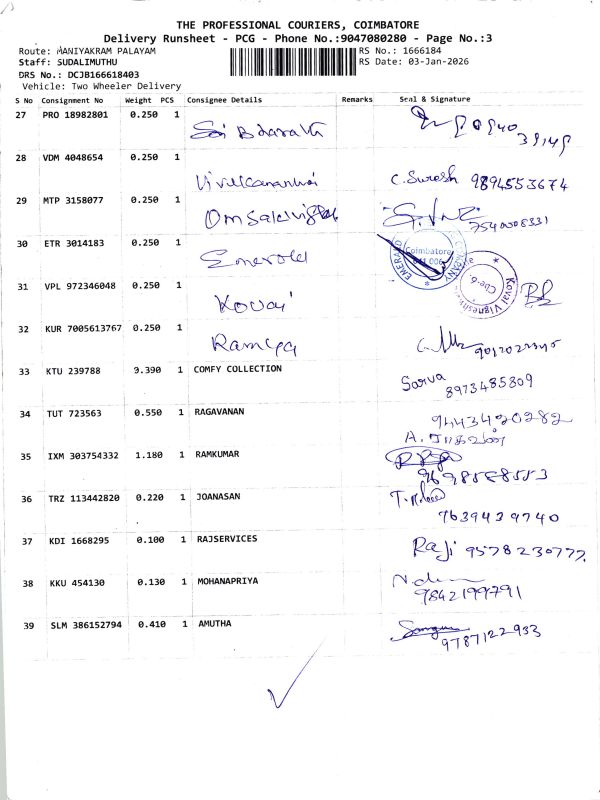 THE PROFESSIONAL COURIERS, COIMBATORE
Delivery Runsheet - PCG - Phone No.:9047080280 - Page No.:3
Route: MANIYAKRAM PALAYAM
RS No.: 1666184
Staff: SUDALIMUTHU
RS Date: 03-Jan-2026
DRS No.: DCJB166618403
Vehicle: Two Wheeler Delivery
S No Consignment No Weight PCS Consignee Details Remarks Seal & Signature
27 PRO 18982801 0.250 1 Sai Bharath
28 VDM 4048654 0.250 1 C. Suresh 9894553674
29 MTP 3158077 0.250 1 7540008331
30 ETR 3014183 0.250 1 Emerald
Coimbatore
31 VPL 972346048 0.250 1 Kovai
Kovai
32 KUR 7005613767 0.250 1 Ramya
33 KTU 239788 3.390 1 COMFY COLLECTION Sarva
8973485309
34 TUT 723563 0.550 1 RAGAVANAN 9443420282
A. ராகவன்
35 IXM 303754332 1.180 1 RAMKUMAR
9698558553
36 TRZ 113442820 0.220 1 JOANASAN
9639439740
37 KDI 1668295 0.100 1 RAJSERVICES Raji 9578230777.
38 KKU 454130 0.130 1 MOHANAPRIYA
9842199791
39 SLM 386152794 0.410 1 AMUTHA
9787122933